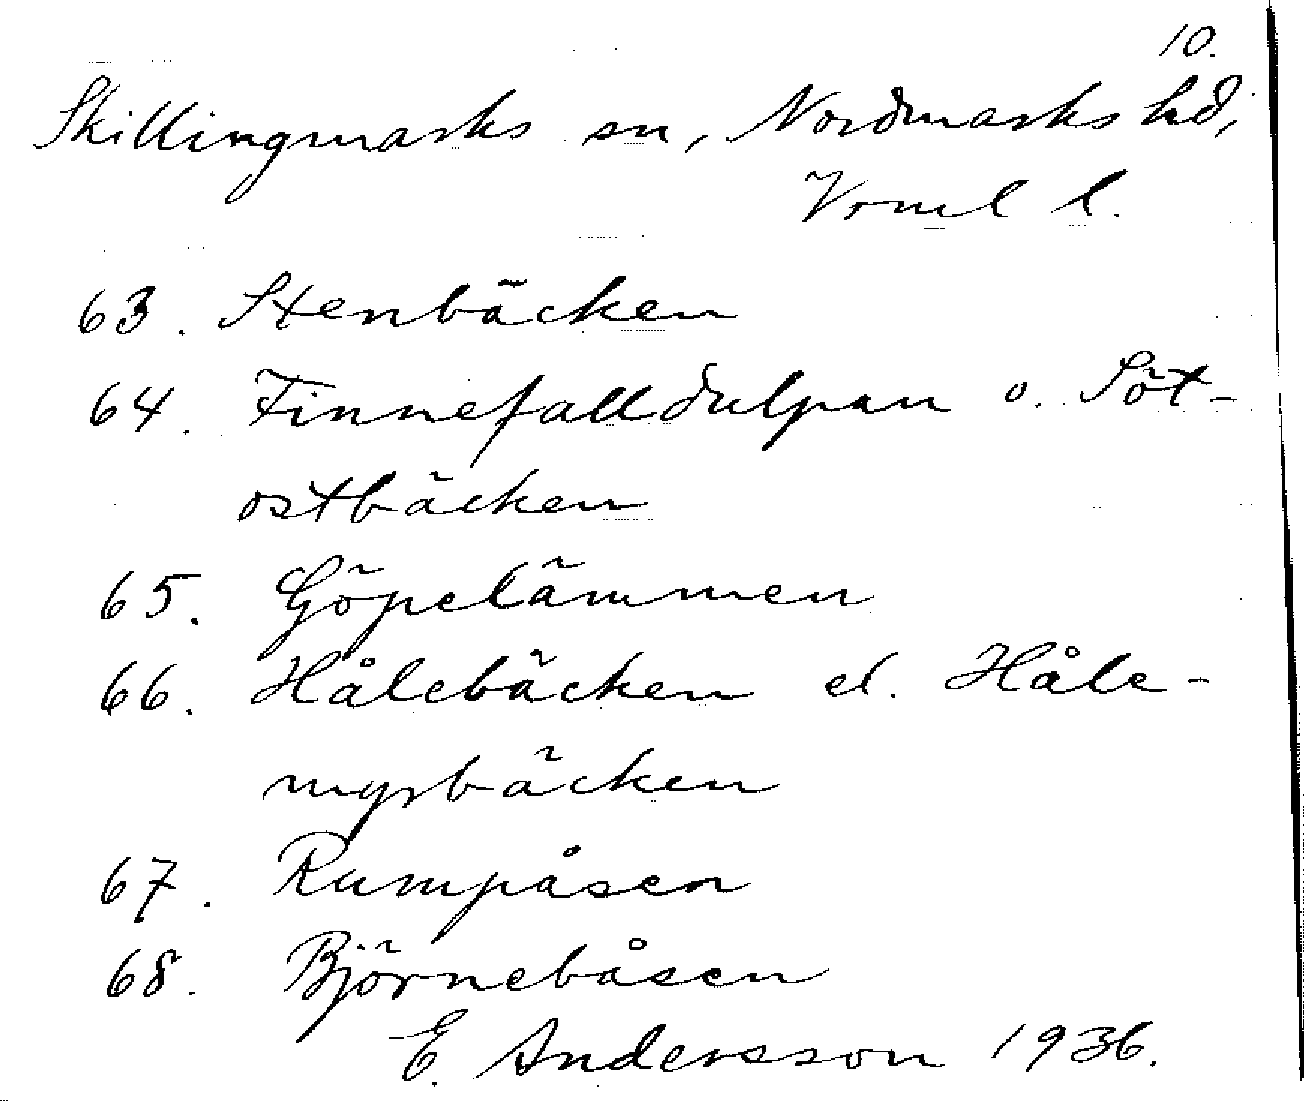 10.
Skillingmarks sn, Nordmarks hd,
Vrml l.
63. Stenbäcken
64. Finnefalldulpan o. Söt-
ostbäcken
65. Göpelämmen
66. Hålebäcken el. Håle-
myrbäcken
67. Rumpåsen
68. Björnebåsen
E. Andersson 1936.